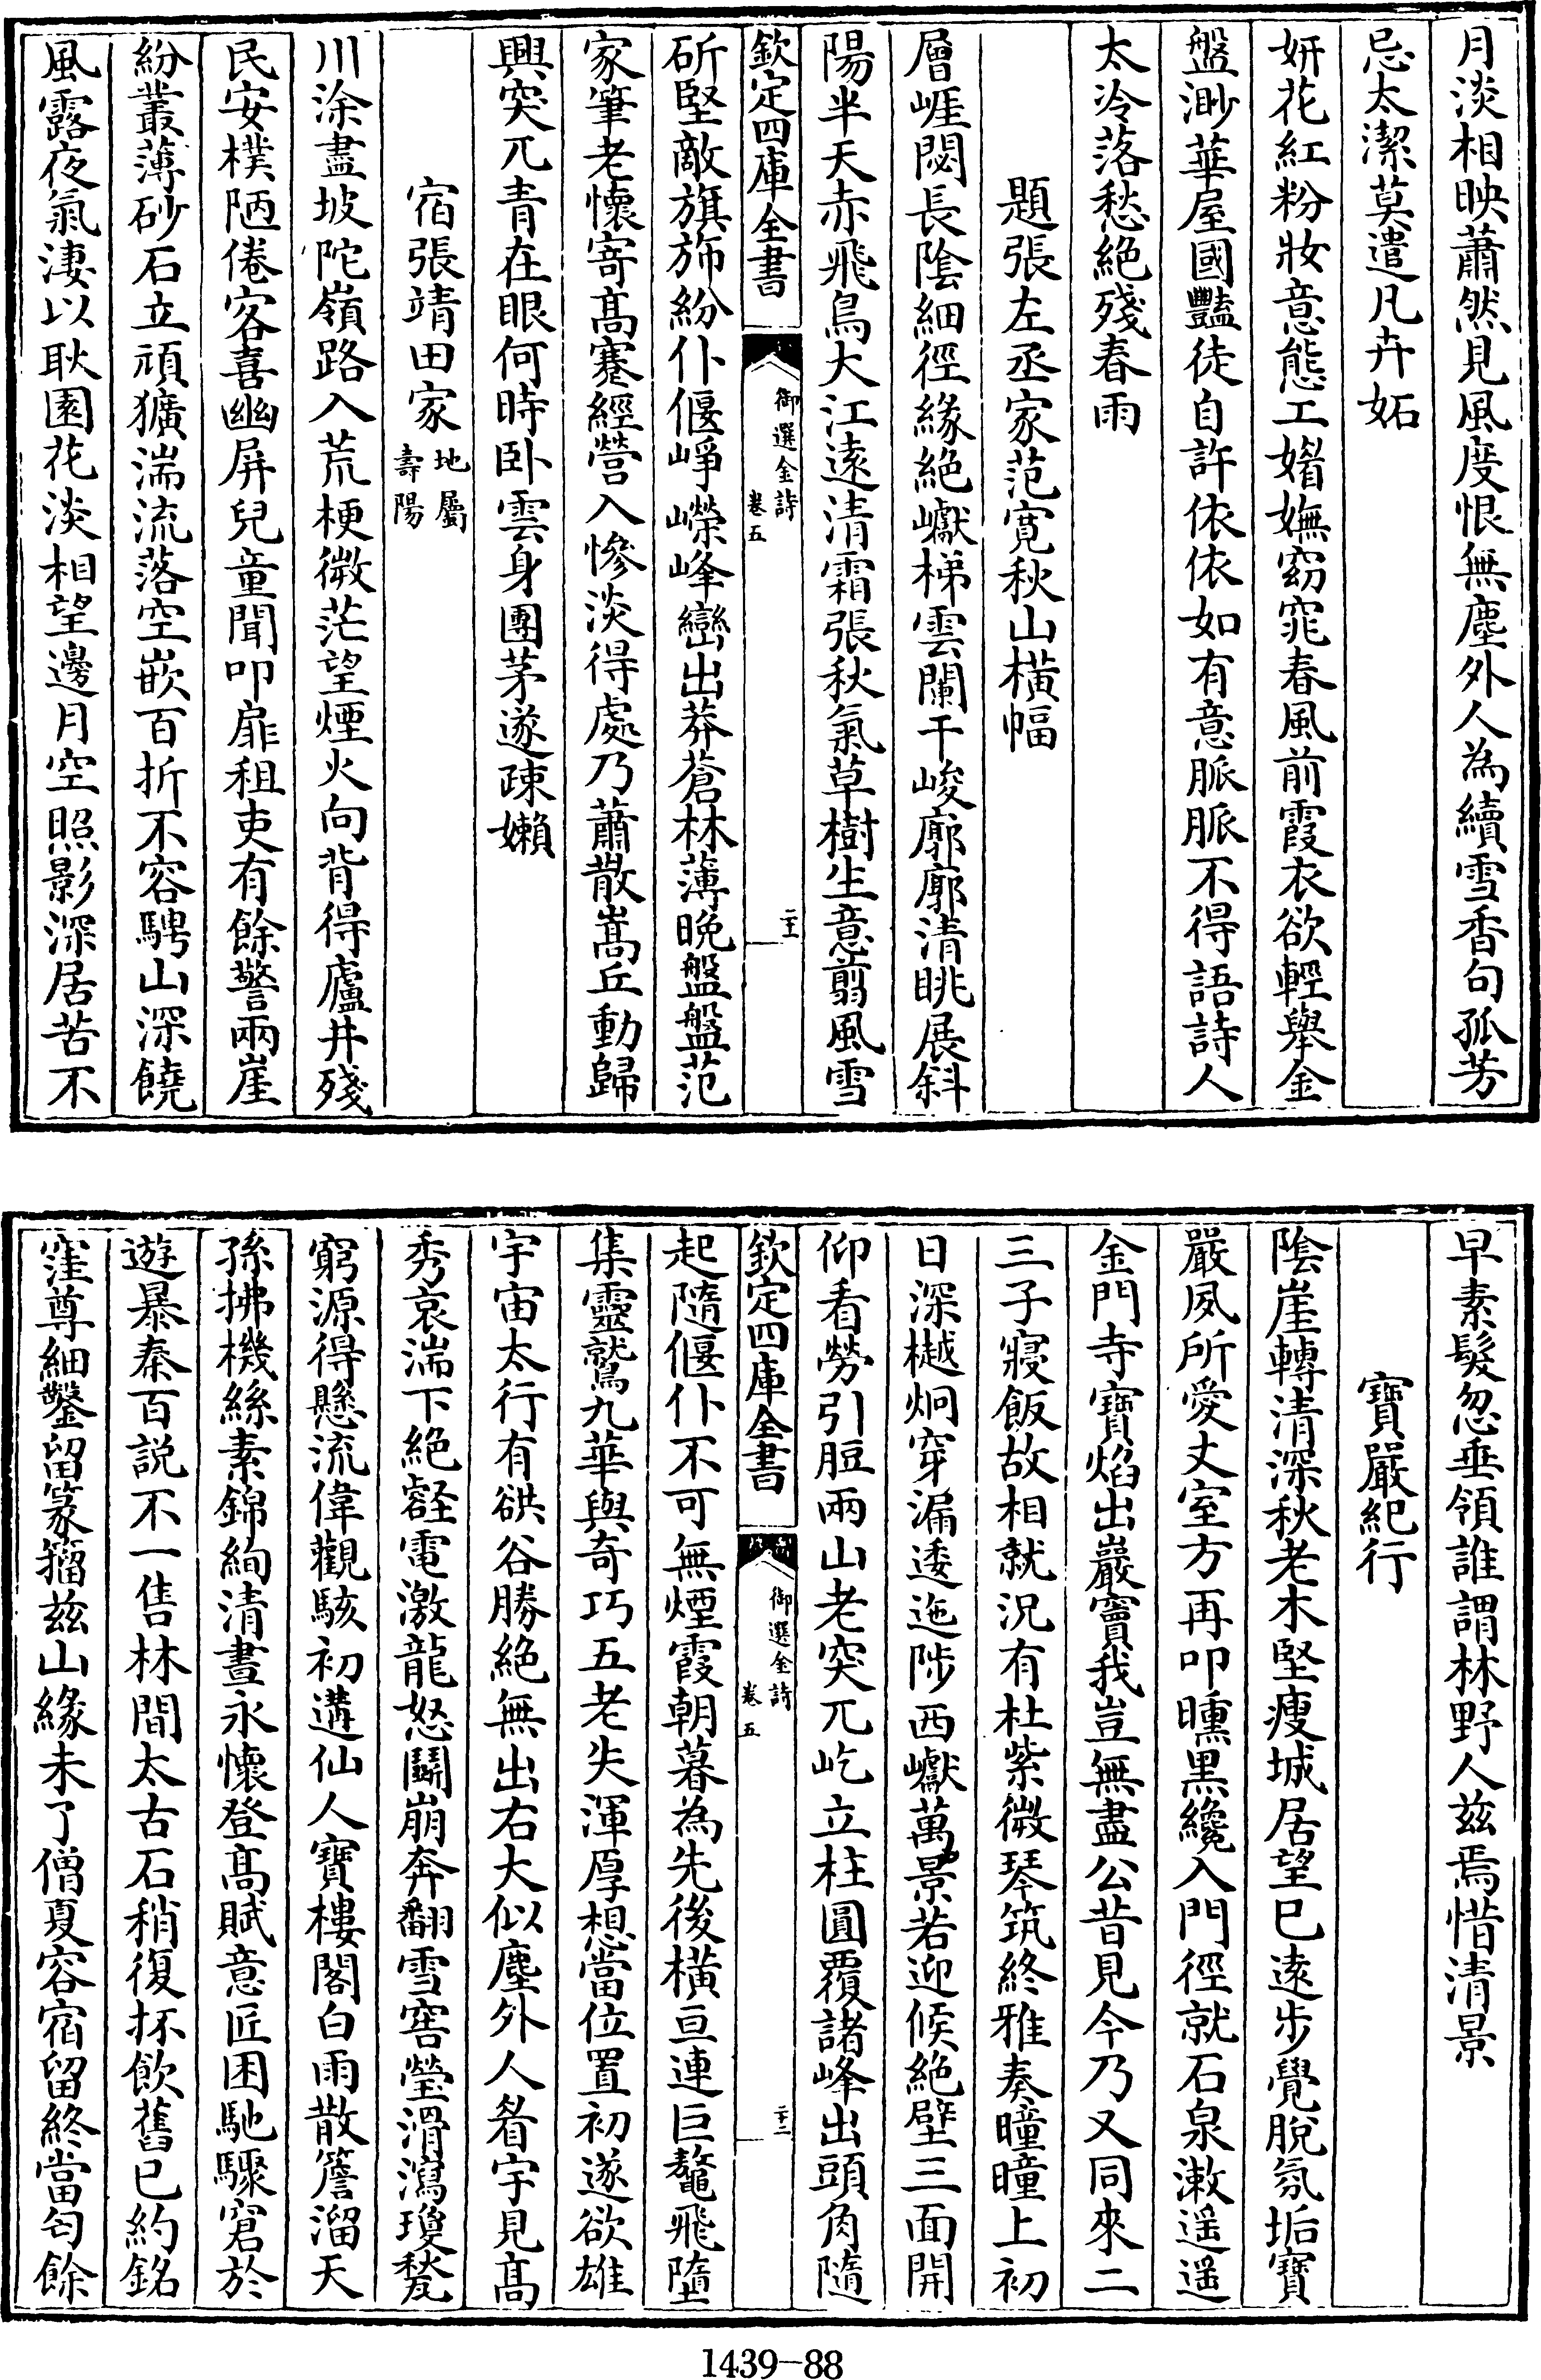 月淡相映蕭然見風度恨無塵外人為續雪香句孤芳
忌太潔莫遣凡卉妬
妍花紅粉妝意態工媚嫵窈窕春風前霞衣欲輕舉金
盤渺華屋國豔徒自許依依如有意脈脈不得語詩人
太冷落愁絶殘春雨
題張左丞家范寛秋山橫幅
層崕閟長陰細徑緣絶巘梯雲闌干峻廓廓清眺展斜
陽半天赤飛鳥大江逺清霜張秋氣草樹生意翦風雪
欽定四庫全書
御選金詩
卷五
二十一
斫堅敵旗斾紛仆偃崢嶸峰巒出莽蒼林薄晚盤盤范
家筆老懷寄髙蹇經營入慘淡得處乃蕭散嵩丘動歸
興突兀青在眼何時卧雲身團茅遂疎嬾
宿張靖田家
地屬
壽陽
川涂盡坡陀嶺路入荒梗微茫望煙火向背得廬井殘
民安樸陋倦客喜幽屏兒童聞叩扉租吏有餘警兩崖
紛叢薄砂石立頑獷湍流落空嵌百折不容騁山深饒
風露夜氣淒以耿園花淡相望邊月空照影深居苦不
早素髮忽垂領誰謂林野人兹焉惜清景
寶嚴紀行
陰崖轉清深秋老木堅瘦城居望已逺步覺脫氛垢寶
嚴夙所愛丈室方再叩曛黒纔入門徑就石泉漱遥遥
金門寺寶焰出巖竇我豈無盡公昔見今乃又同來二
三子寢飯故相就況有杜紫微琴筑終雅奏曈曈上初
日深樾炯穿漏逶迤陟西巘萬景若迎候絶壁三面開
仰看勞引脰兩山老突兀屹立柱圓覆諸峰出頭角隨
欽定四庫全書
御選金詩
卷五
二十二
起隨偃仆不可無煙霞朝暮為先後橫亘連巨鼇飛墮
集靈鷲九華與奇巧五老失渾厚想當位置初遂欲雄
宇宙太行有谼谷勝絶無出右大似塵外人眷宇見髙
秀哀湍下絶壑電激龍怒鬭崩奔翻雪窖瑩滑瀉瓊甃
窮源得懸流偉觀駭初遘仙人寶樓閣白雨散簷溜天
孫拂機絲素錦絢清晝永懷登髙賦意匠困馳驟窘於
遊暴秦百説不一售林間太古石稍復抔飲舊已約銘
窪尊細鑿留篆籀兹山緣未了僧夏容宿留終當匃餘
1439—88